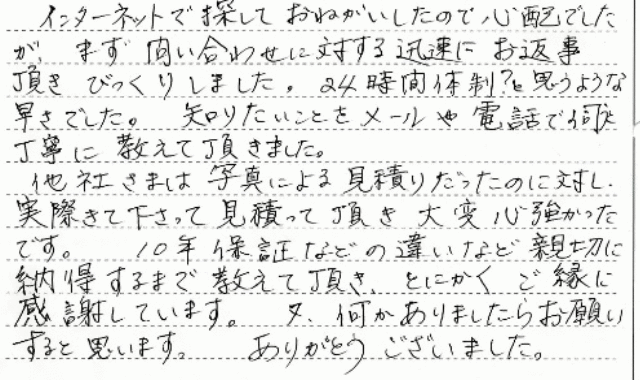 インターネットで探しておねがいしたので心配でした
が、まず問い合わせに対する迅速にお返事
頂きびっくりしました。24時間体制?と思うような
早さでした。 知りたいことをメールや電話で何と
丁寧に教えて頂きました。
他社さまは写真による見積りだったのに対し、
実際きて下さって見積って頂き大変心強かった
です。 10年保証などの違いなど親切に
納得するまで教えて頂き、とにかくご縁に
感謝しています。又、何かありましたらお願い
すると思います。 ありがとうございました。